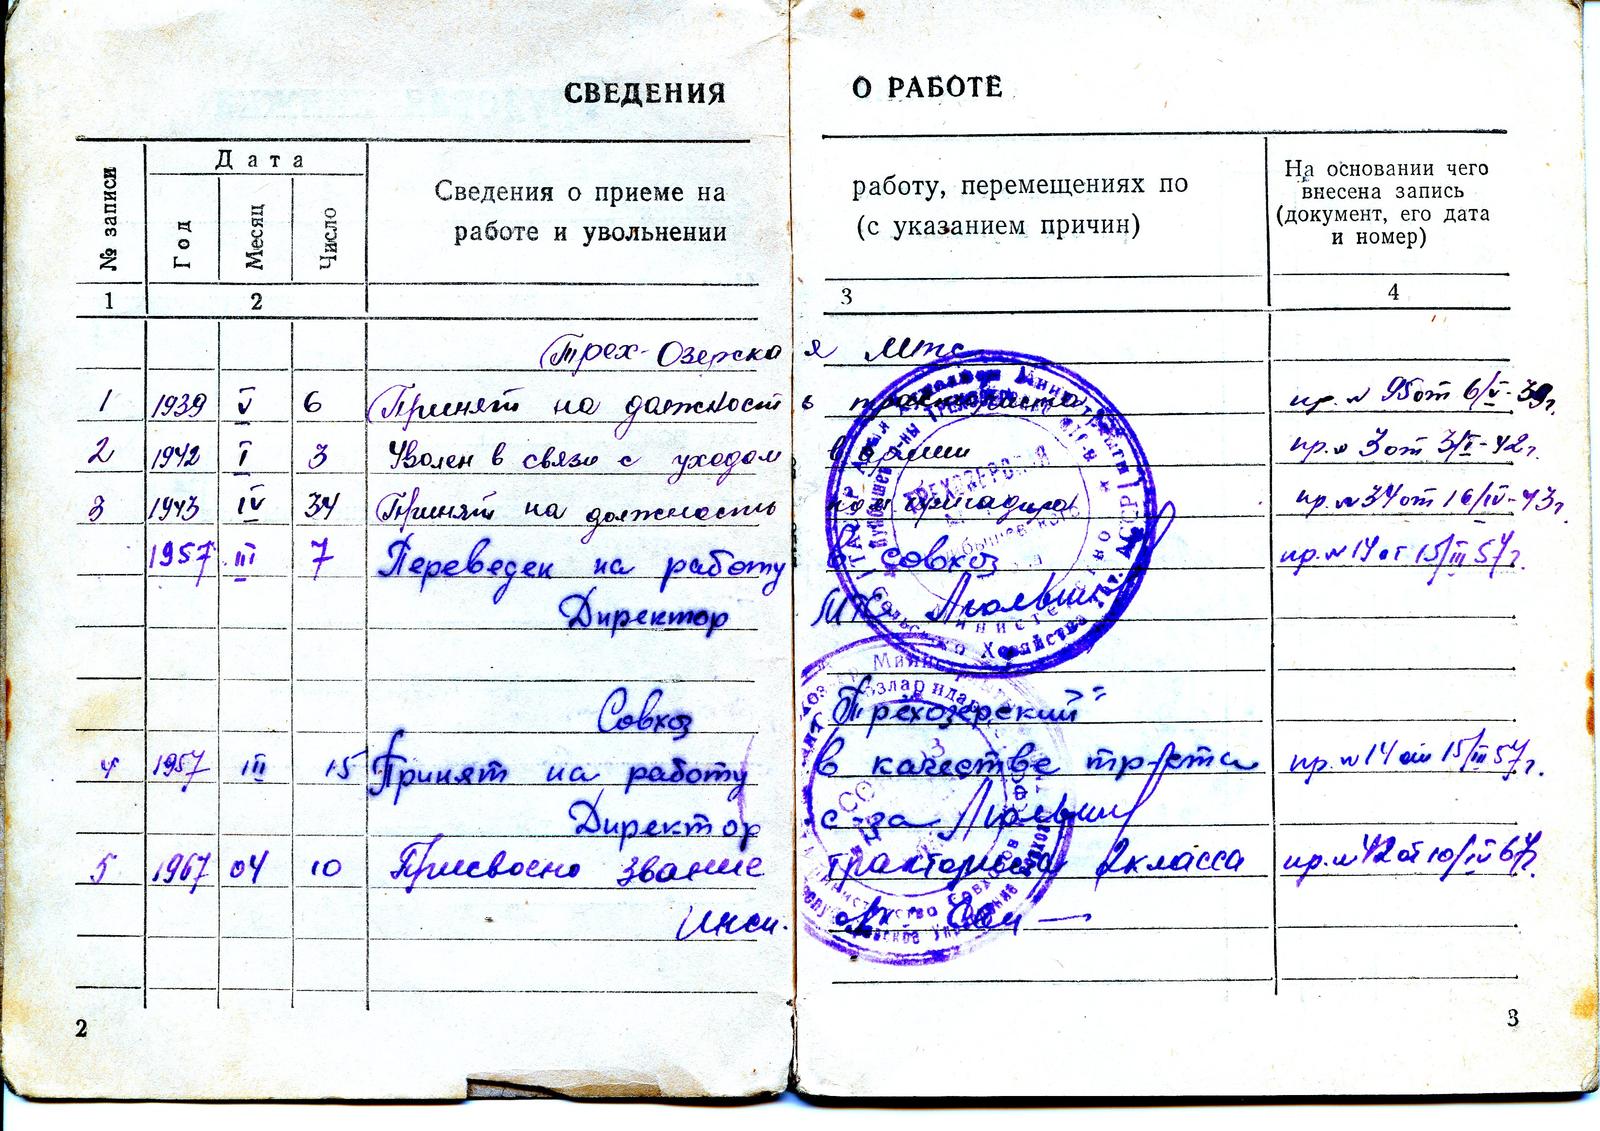 СВЕДЕНИЯ О РАБОТЕ
№ записи
Дата
Год
Месяц
Число
Сведения о приеме на работу, перемещениях по
работе и увольнении (с указанием причин)
На основании чего
внесена запись
(документ, его дата
и номер)
1 2 3 4
Трех-Озерская Мтс
1 1939 V 6 Принят на должность тракториста пр. № 95 от 6/V-39г.
2 1942 I 3 Уволен в связи с уходом в армии пр. № 3 от 3/I-42г.
3 1943 IV 34 Принят на должность бригадира пр. № 34 от 16/IV-43г.
1957 III 7 Переведен на работу в совхоз пр. № 14 от 15/III 57г.
Директор
Совхоз "Трехозерский"
4 1957 III 15 Принят на работу в качестве тр-ста пр. № 14 от 15/III 57г.
Директор с-за
5 1967 04 10 Присвоено звание тракториста 2 класса пр. № 42 от 10/IV 67г.
Инсп.
2
3